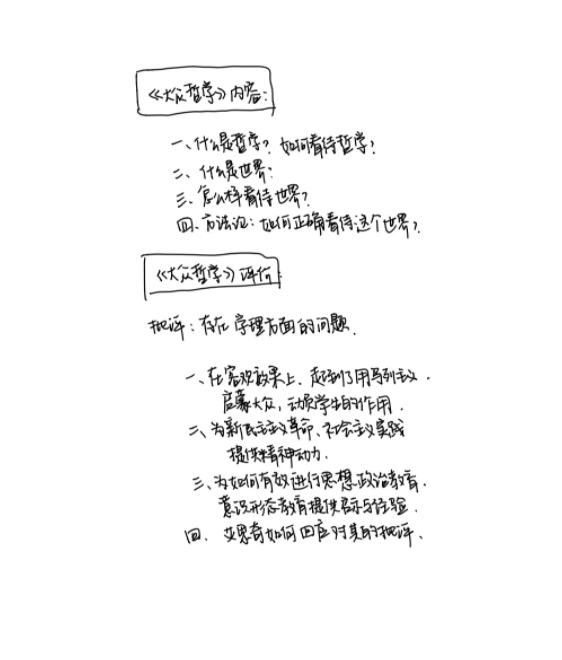 《大众哲学》内容：
一、什么是哲学？如何看待哲学？
二、什么是世界？
三、怎么样看待世界？
四、方法论：如何正确看待这个世界？
《大众哲学》评价：
批评：存在学理方面的问题.
一、在客观效果上、起到了用马列主义.
启蒙大众，动员学生的作用.
二、为新民主主义革命、社会主义实践
提供精神动力.
三、为如何有效进行思想政治教育.
意识形态教育提供启示与经验.
四、艾思奇如何回应对其的批评.